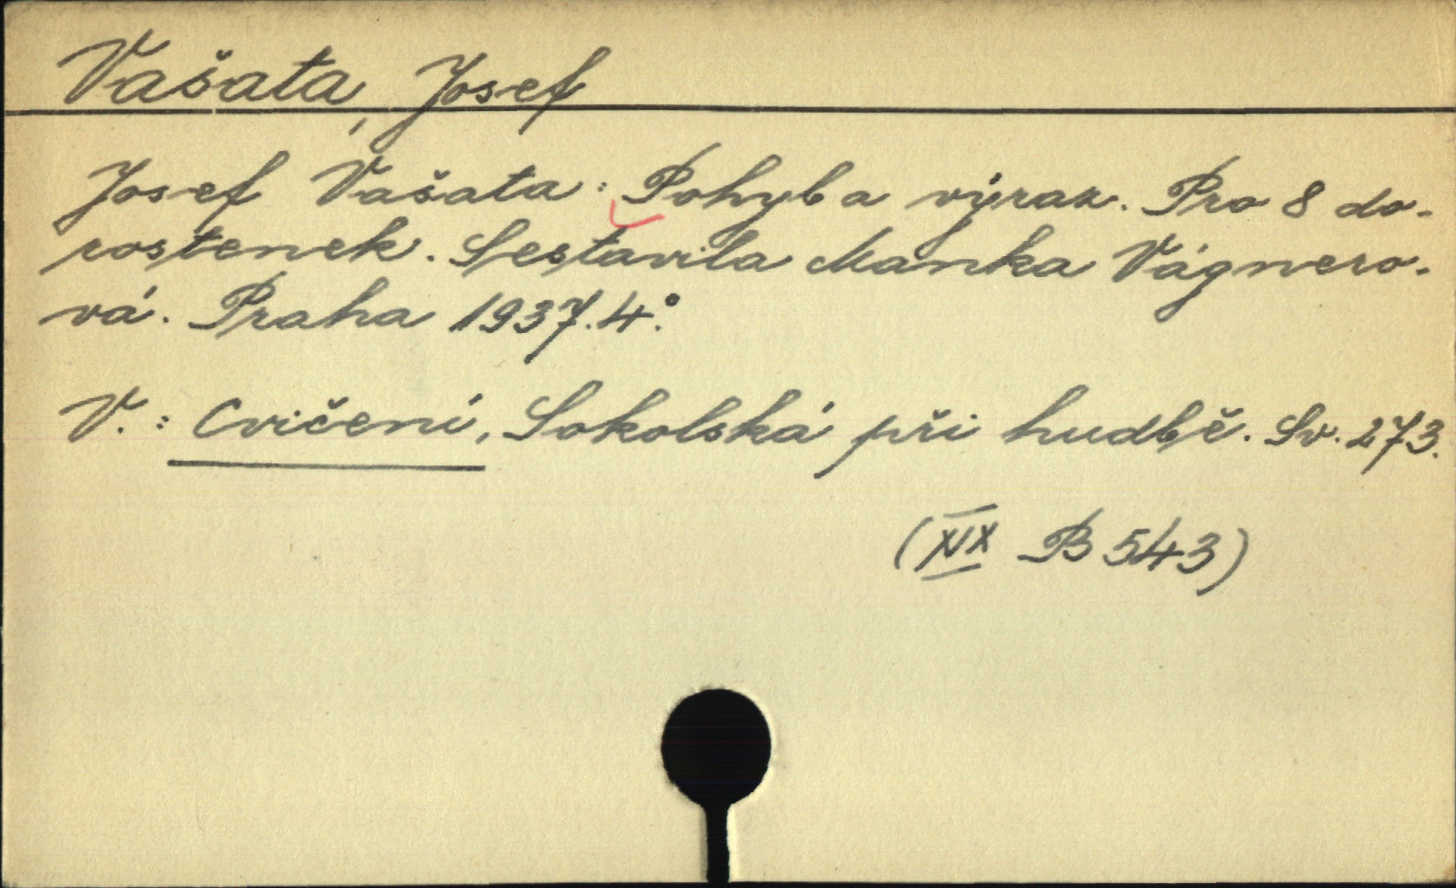 Vašata, Josef
Josef Vašata: Pohyb a výraz. Pro 8 do-
rostenek. Sestavila Manka Vágnero-
vá. Praha 1937. 4.°
V.: Cvičení, Sokolská při hudbě. Sv. 273.
(XIX B 543)